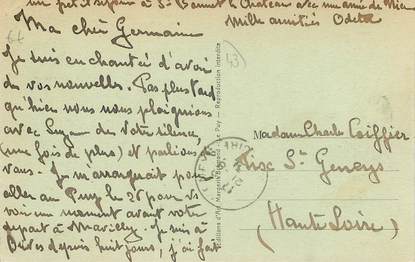 un petit séjour à St Bonnet le Chateau avec une amie de
Mille amitiés Odette
Ma chèr Germaine
Je suis enchantée d'avoir
de vos nouvelles. Pas plus tard
qu'hier nous nous plaignions
avec Suzon de votre silence,
(une fois de plus) et parlions
vous. Je m'arrangerait pour
aller au Puy le 26 pour
voir un moment avant votre
départ à Marcilly. Je suis à
depuis huit jours, j'ai fait
43
Madame Charles Coiffier
Aix St Geneys
(Haute Loire)
Éditions d'Art Margerit-Brémond - Le Puy - Reproduction interdite